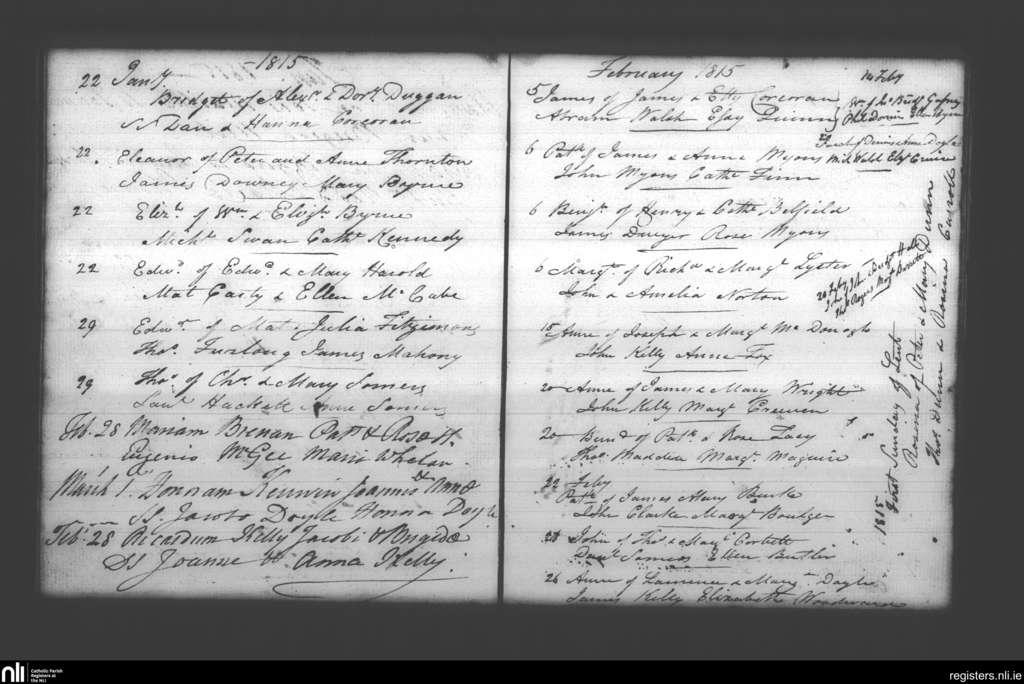 1815
22 Jany
Bridget of Alexr. & Dory. Duggan
SS Dan & Hanna Corcoran
22. Eleanor of Peter and Anne Thornton
James Downey Mary Byrne
22 Elizh. of Wm. & Elizh. Byrne
Michl. Swan Cathe. Kennedy
22 Edwd. of Edwd. & Mary Harold
Mat Casty & Ellen McCabe
29 Edwd. of Mat & Julia Fitzimons
Thos. Furlong James Mahony
29 Thos. of Chrs. & Mary Somers
Laue. Hackett Anne Somers
Feb. 28 Mariam Brenan Patt & Rosæ
Eugenio McGee Maria Whelan
March 1. Honoram Kerwin Joannis & Anna
SS. Jacobo Doyle Honoria Doyle
Feb. 28 Ricardum Kelly Jacobi & Brigidæ
SS Joanne & Anna Kelly.
February 1815
5 James of James & Etty Corcoran
Abram Walsh Esay Dunn
6 Patk. of James & Anne Myons
John Myons Cathe Finn
6 Benjn. of Henry & Cathe. Belfield
James Dwyer Rose Myons
6 Margt. of Richd & Margt. Lyster
John & Amelia Norton
15 Anne of Joseph & Margt. McDonogh
John Kelly Anne Fox
20 Anne of James & Mary Wright
John Kelly Margt. Creeven
20 Bernd of Patk. & Rose Lacy
Thos. Madden Margt. Maguire
22 Feby
Patk. of James Mary Burke
John Clarke Margt Boulger
28 John of Thos. & Margt. Corbett
Danl. Somers Ellen Butler
26 Anne of Laurence & Margt. Doyle
James Kelly Elizabeth Woodward
14 Feby
Wm of Jas Bridt Gafney
Sarah of Dennis Anne Doyle
Mick Walsh
20 Feby
1815
First Sunday of Lent
Rosina of Peter & Mary Dunn
Thos. Dunn & Anne Carroll
nli
Catholic Parish
Registers at
the NLI
registers.nli.ie